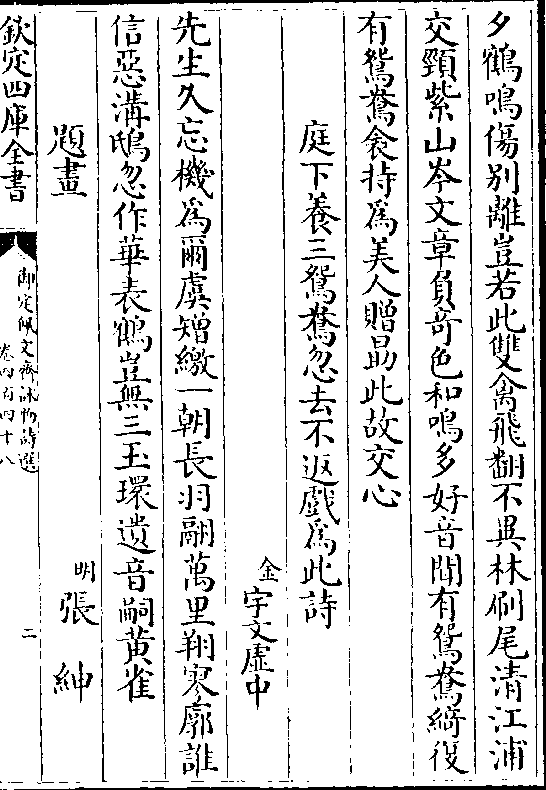 夕鶴鳴傷别離豈若此雙禽飛翻不異林刷尾清江浦
交頸紫山岑文章負奇色和鳴多好音聞有鴛鴦綺復
有鴛鴦衾持為美人贈勗此故交心
庭下養三鴛鴦忽去不返戲為此詩
金 宇文虛中
先生久忘機為爾虞矰繳一朝長羽翮萬里翔寥廓誰
信惡溝鴟忽作華表鶴豈無三玉環遺音嗣黃雀
題畫
明 張紳
欽定四庫全書
御定佩文齋詠物詩選
卷四百四十八
二